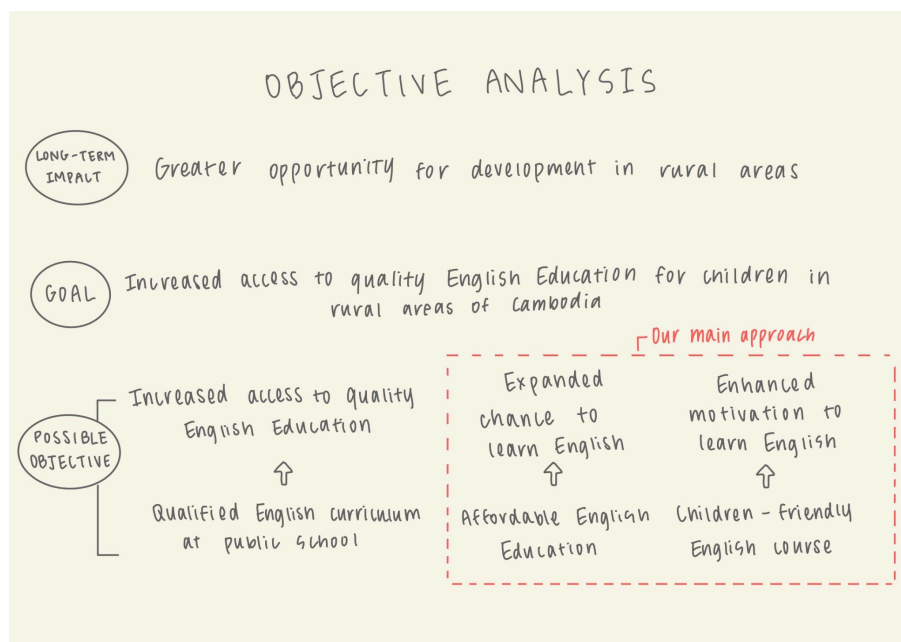 OBJECTIVE ANALYSIS
LONG-TERM
IMPACT
Greater opportunity for development in rural areas
GOAL
Increased access to quality English Education for children in
rural areas of Cambodia
Our main approach
POSSIBLE
OBJECTIVE
Increased access to quality
English Education
Qualified English curriculum
at public school
Expanded
chance to
learn English
Affordable English
Education
Enhanced
motivation to
learn English
Children-friendly
English course